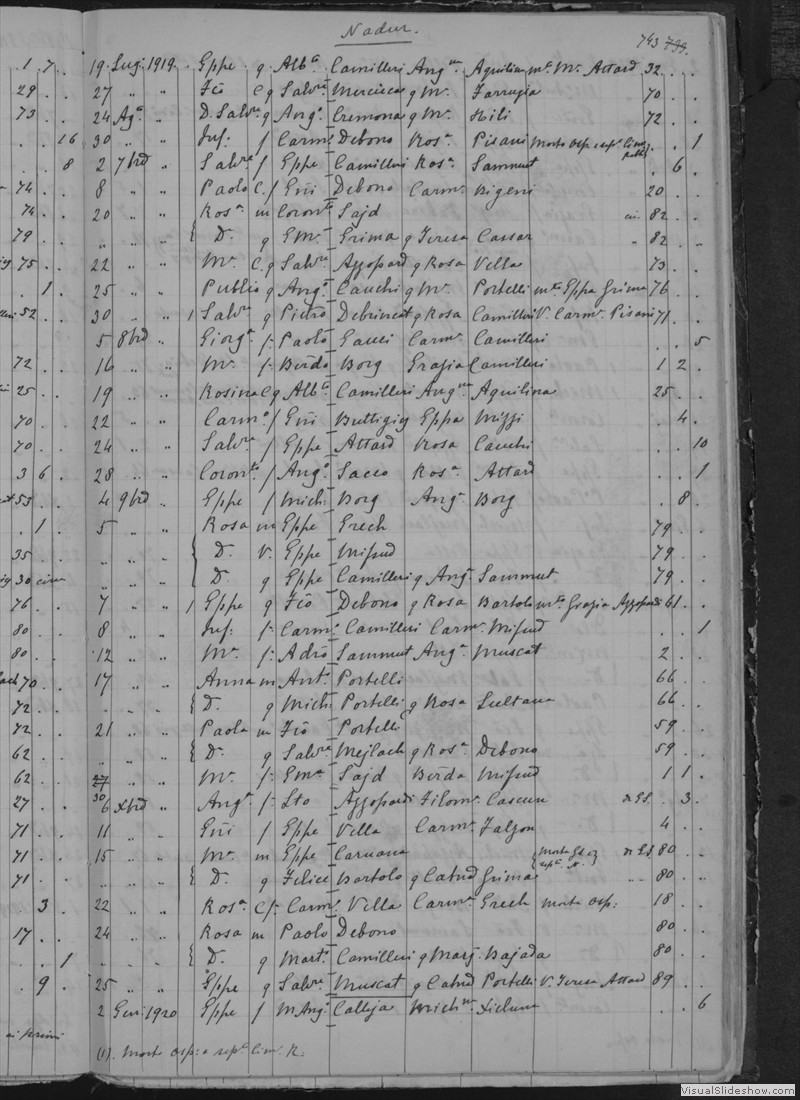 Nadur.
743 799.
1 7 . 19 Lug. 1919 . Eppe g Alb.to Camilleri Ang.na Aquilina m.to M.a Attard 32 . .
29 . . 27 " " Fċo C g Salv.re Mercieca g M.a Farrugia 70 . .
73 . . 24 Ag.o " D. Salv.re g Ang.o Cremona g M.a Hili 72 . .
. . 16 30 " " Inf: f Carm.o Debono Ros.a Pisani morto osp sep.o Cim. . . 1
. . 8 2 7bre " Salv.re f Eppe Camilleri Ros.a Sammut . 6 .
74 . . 8 " " Paolo C. f Gni Debono Carm.a Bigeni 20 . .
74 . . 20 " " Ros.a m Coron.to Sajd 82 . .
79 . . " " " { D.a g Em.le Grima g Teresa Cassar " 82 . .
75 . . 22 " " M.a C. g Salv.re Azzopardi g Rosa Vella 73 . .
. 1 . 25 " " Publio g Ang.o Cauchi g M.a Portelli m.to Eppa Grima 76 . .
52 . . 30 " " 1 Salv.e g Pietro Debrincat g Rosa Camilleri V. Carm.a Pisani 71 . .
5 8bre " Giorg.a f. Paolo Gauci Carm.a Camilleri . . 5
72 . . 16 " " M.a f. Berdo Borg Grazia Camilleri 1 2 .
25 . . 19 " " Rosina C g Alb.to Camilleri Ang.na Aquilina 25 . .
70 . . 22 " " Carm.o f Gni Buttigieg Eppa Mizzi . 4 .
70 . . 24 " " Salv.re f Eppe Attard Rosa Cauchi . . 10
3 6 . 28 " " Coron.to f Ang.o Sacco Ros.a Attard . . 1
53 . . 4 9bre " Eppe f Mich: Borg Ang.a Borg . 8 .
. 1 . 5 " " Rosa m Eppe Grech 79 . .
35 . . " " " { D.a V. Eppe Mifsud 79 . .
30 circa " " " D.a g Eppe Camilleri g Ang.a Sammut 79 . .
76 . . 7 " " 1 Eppe g Fċo Debono g Rosa Bartolo m.to Grazia Azzopardi 61 . .
80 . . 8 " " Inf: f. Carm.o Camilleri Carm.a Mifsud . . 1
80 . . 12 " " M.a f. Adrõ Sammut Ang.a Muscat 2 . .
70 . . 17 " " Anna m Ant.o Portelli 66 . .
72 . . " " " { D.a g Mich: Portelli g Rosa Sultana 66 . .
72 . . 21 " " Paola m Fċo Portelli 59 . .
62 . . " " " { D.a g Salv.re Mejlach g Ros.a Debono 59 . .
62 . . 27 " " M.a f. Em.le Sajd Berda Mifsud 1 1 .
27 . . 30 6 Xbre " Ang.a f. Sto Azzopardi Filom.a . 3 .
71 . . 11 " " Gni f Eppe Vella Carm.a Falzon 4 . .
71 . . 15 " " M.a m Eppe Caruana 80 . .
71 . . " " " { D.a g Felice Bartolo g Catnd Grima " 80 . .
. 3 . 22 " " Ros.a C f. Carm.o Vella Carm.a Grech morta osp: 18 . .
17 . . 24 " " Rosa m Paolo Debono 80 . .
. . 1 " " " { D.a g Mart.o Camilleri g Marg. Bajada 80 . .
. 9 . 25 " " Eppe g Salv.re Muscat g Catnd Portelli V. Teresa Attard 89 . .
2 Gen. 1920 Eppe f M.Ang.o Calleja Mich.na Xicluna . . 6
(1). Morto osp: e sep.o Cim. R.
VisualSlideshow.com